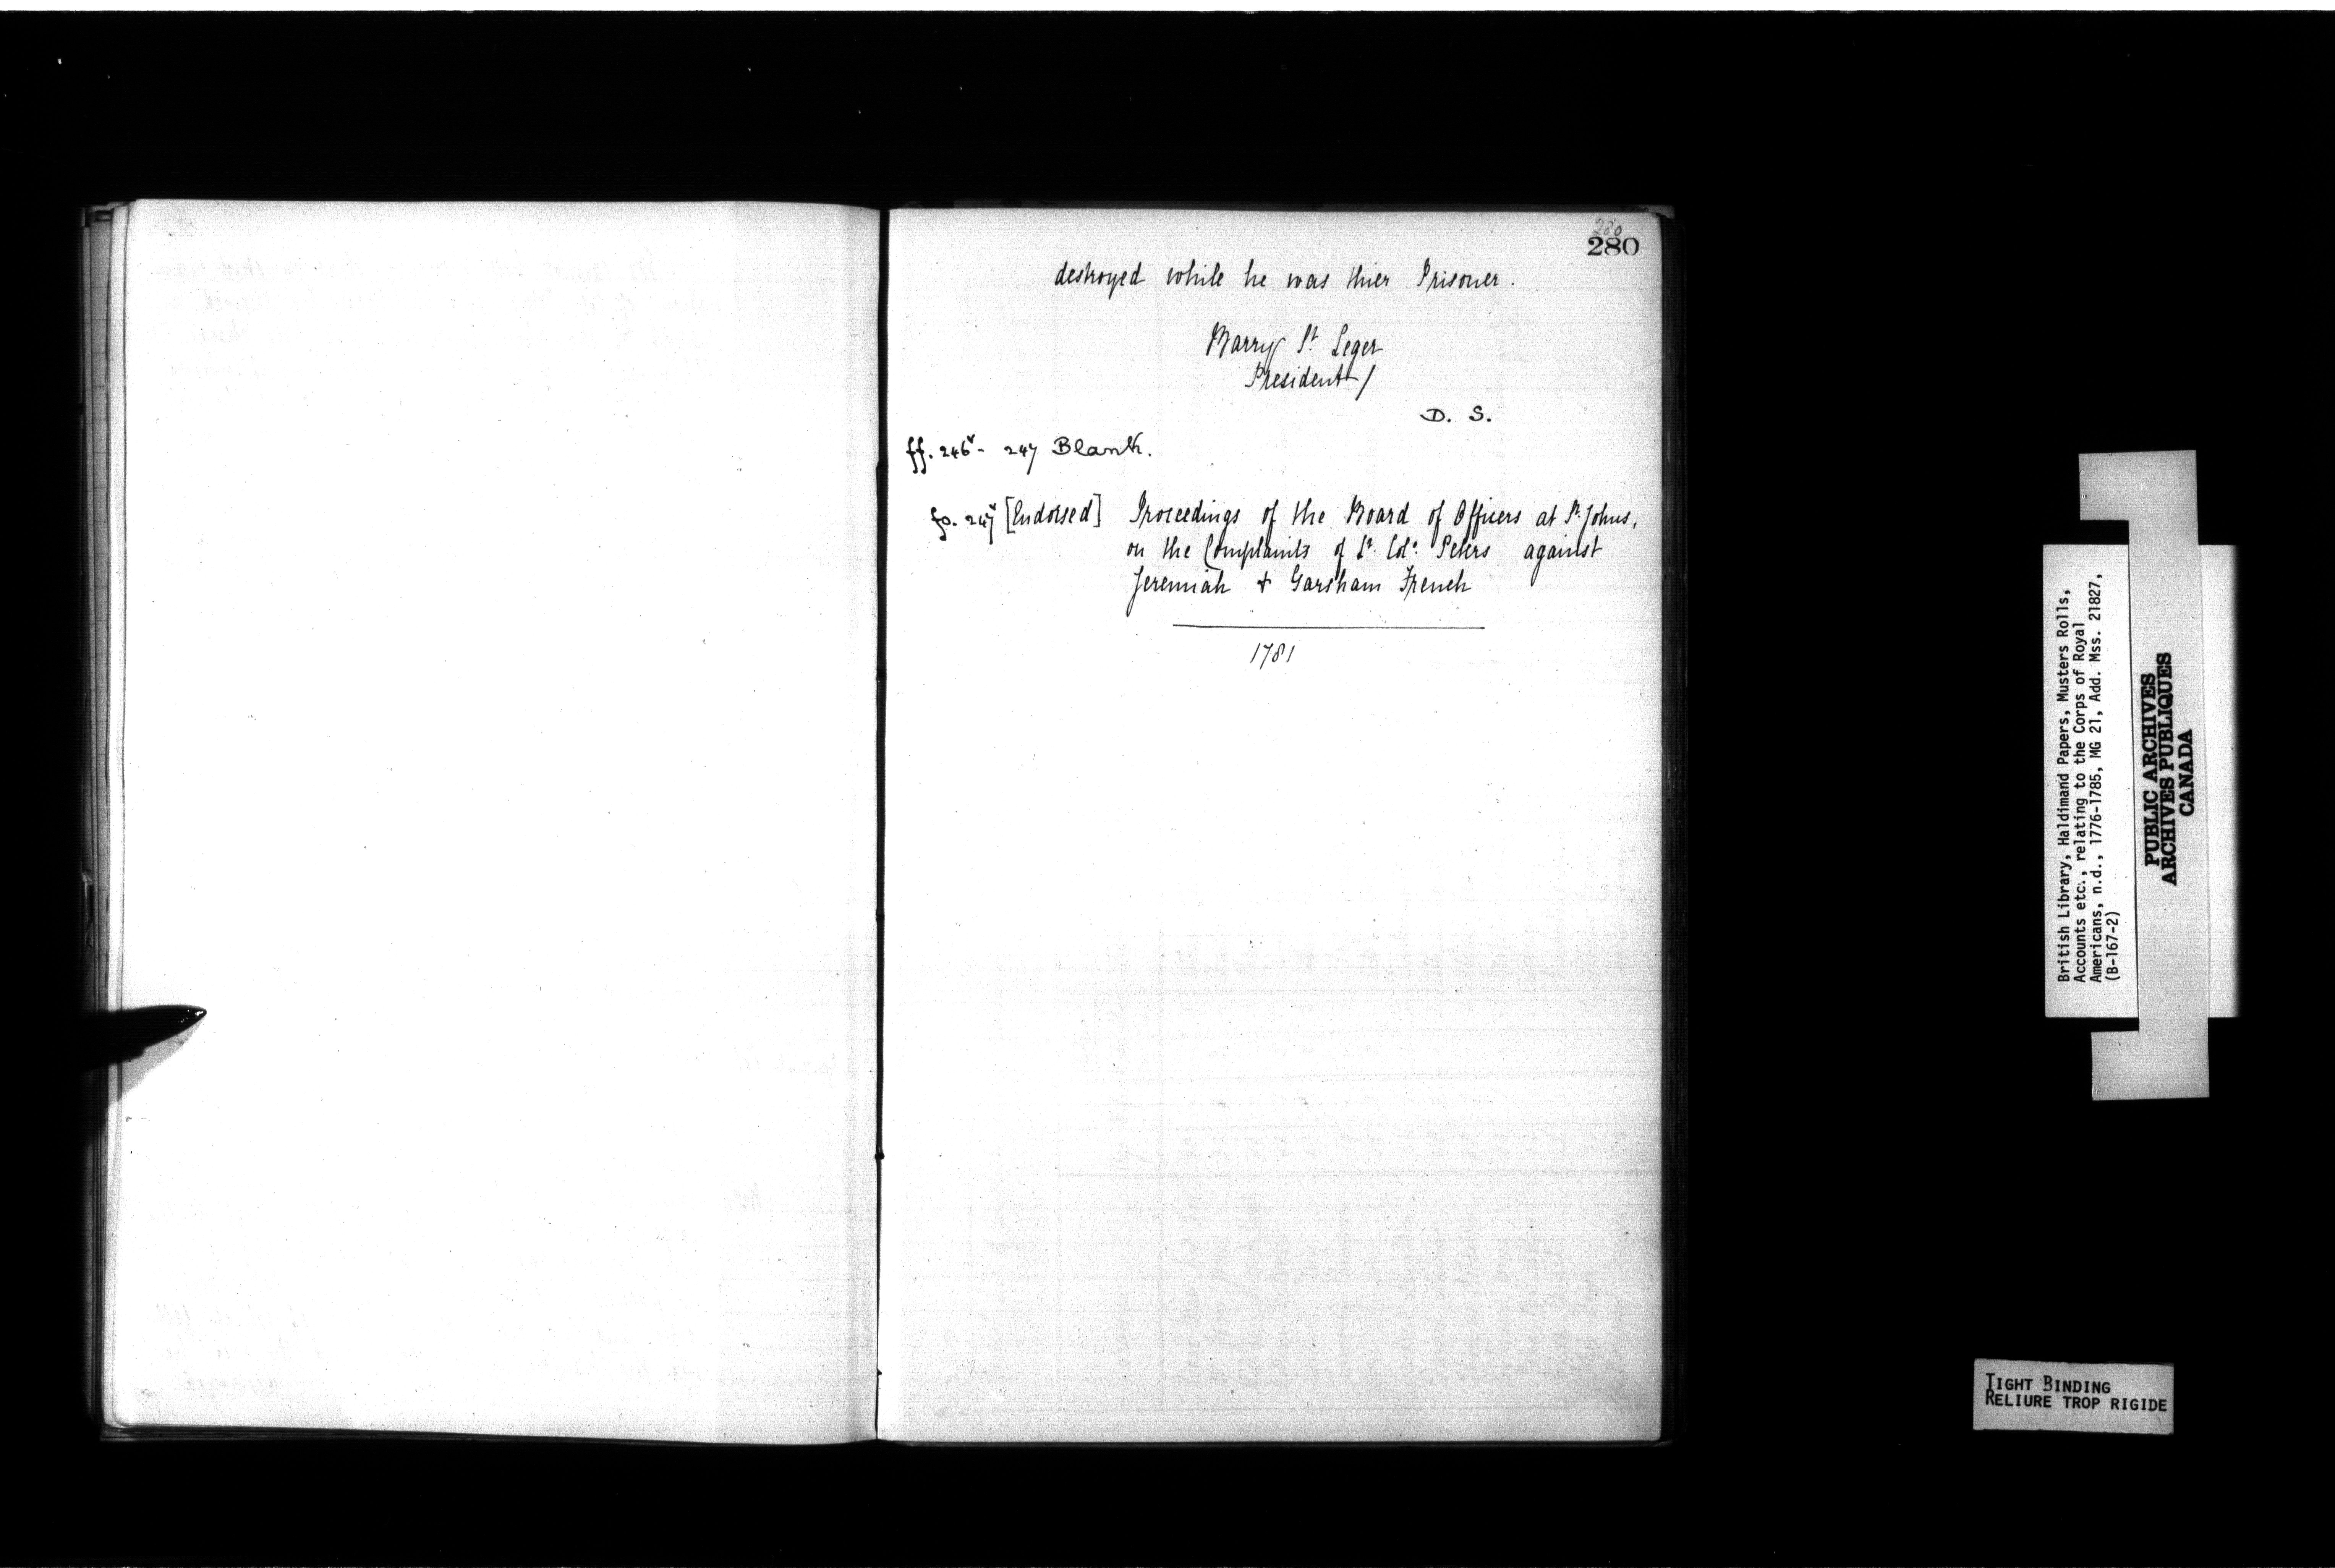 280
280
destroyed while he was thier Prisoner.
Barry St Leger
President/
D. S.
ff. 246v - 247 Blank.
fo. 247v [Endorsed] Proceedings of the Board of Officers at St. Johns,
on the Complaints of Lt. Col. Peters against
Jeremiah & Garsham French
1781
British Library, Haldimand Papers, Musters Rolls,
Accounts etc., relating to the Corps of Royal
Americans, n.d., 1776-1785, MG 21, Add. Mss. 21827,
(B-167-2)
PUBLIC ARCHIVES
ARCHIVES PUBLIQUES
CANADA
TIGHT BINDING
RELIURE TROP RIGIDE